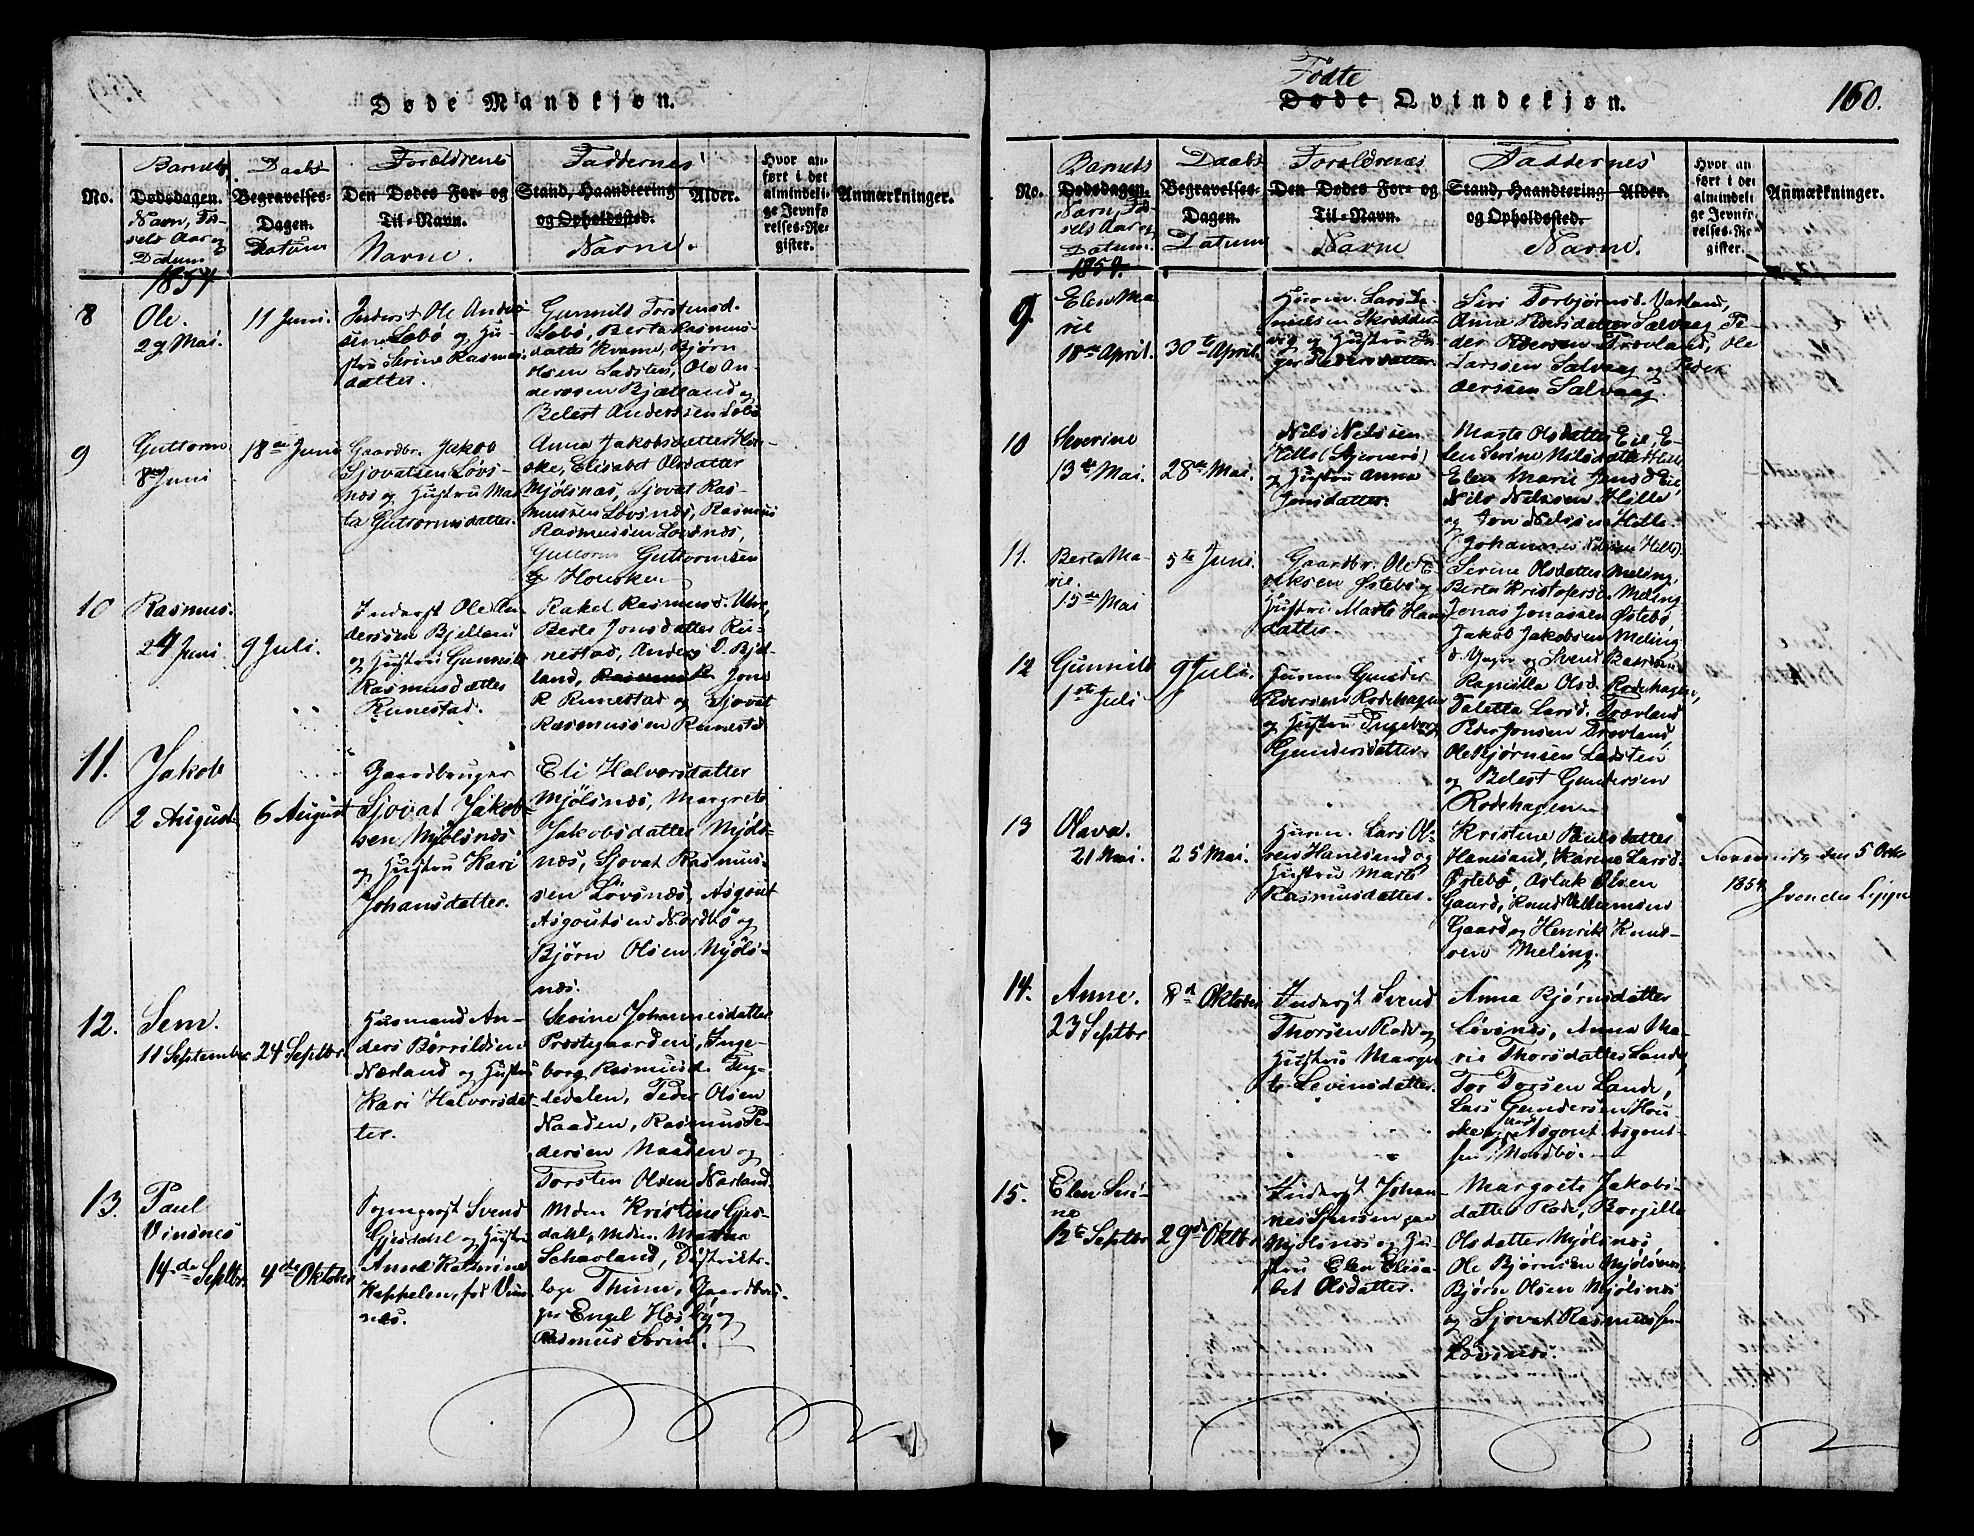 Døde Mandkjøn.
No.
Barnets
Dødsdagen.
Navn, Fø-
sels Aar og
Datum
Daabs
Begravelses-
Dagen.
Datum
Forældrenes
Den Dødes For- og
Til-Navn.
Navne.
Faddernes
Stand, Haandtering
og Opholdssted.
Navne.
Alder.
Hvor an-
ført i det
almindeli-
ge Jevnfø-
relses-Re-
gister.
Anmærkninger.
1854
8
Ole.
29 Mai.
11 Juni.
Inderst Ole Anders-
sen Lebø og Hu-
stru Serine Rasmus-
datter.
Gunnild Torstensd.
Lebø, Berta Rasmus-
datter Kvame, Bjørn
Olsen Ladsten, Ole An-
derssen Bjælland og
Belest Anderssen Lebø
9
Guttorm
8de Juni
18de Juni
Gaardbr. Jakob
Sjovatsen Løvs-
næs og Hustru Mar-
ta Guttormsdatter.
Anna Jakobsdatter Hou-
ske, Elisabet Olsdatter
Mjølsnæs, Sjovat Ras-
mussen Løvsnæs, Rasmus
Rasmussen Løvsnæs,
Guttorm Guttormsen
Houske
10
Rasmus.
24 Juni
9 Juli.
Inderst Ole An-
derssen Bjelland
og Hustru Gunnild
Rasmusdatter
Runestad.
Rakel Rasmusd.
Berte Jonsdatter Ru-
nestad, Anders O. Bjel-
land, Rasmus R. Jone
R Runestad og Sjovat
Rasmussen Runestad
11.
Jakob
2 August
6 August
Gaardbruger
Sjovat Jakob-
sen Mjølsnæs
og Hustru Kari
Johansdatter.
Eli Halvorsdatter
Mjølsnæs, Margrete
Jakobsdatter Mjøls-
næs, Sjovat Rasmus-
sen Løvsnæs, Asgout
Asgoutsen Nordbø og
Bjørn Olsen Mjøls-
næs.
12.
Sem.
11 September
24 Septbr.
Husmand An-
ders Børrildsen
Nærland og Hustru
Kari Halvorsdat-
ter.
Serine Johannesdatter
Præstegaarden, Inge-
borg Rasmusd. Tey-
dedalen, Peder Olsen
Naaden, Rasmus Pe-
dersen Naaden og
Torsten Olsen Nærland.
13.
Paul
Vinsnes
14de Septbr.
4de Oktober
Sogneprest Svend
Gjesdahl og Hustru
Anne Kathrine
Kappelen, fød Vins-
nes.
Mdm Kristine Gjes-
dahl, Mdm. Martha
Schavland, Distrikts-
læge Thime, Gaardbru-
ger Engel Hæsby og
Rasmus Serine.
Fødte
Døde Qvindekjøn.
160.
No.
Barnets
Dødsdagen.
Navn, Fø-
sels Aar og
Datum.
Daabs
Begravelses-
Dagen.
Datum
Forældrenes
Den Dødes For- og
Til-Navn.
Navne
Faddernes
Stand, Haandtering
og Opholdssted.
Navne.
Alder.
Hvor an
ført i det
almindeli
ge Jevnfø-
relses-Re
gister.
Anmærkninger.
1854.
9.
Elen Ma-
rie
18de April.
30te April.
Husm. Lars Da-
nielsen Skredder-
vig og Hustru In-
ger Pedersdatter.
Siri Torbjørnsd. Varland,
Anne Pedersdatter Salvaag, Pe-
der Pedersen Trovland, Ole
Larssen Salvaag og Peder
Pedersen Salvaag.
10
Severine
13de Mai.
28de Mai.
Nils Nilssen
Hille (Stjernerø)
og Hustru Anna
Jonsdatter.
Marte Olsdatter Eie, E-
len Serine Nilsdatter Hille
Elen Marie Jensd. Eie,
Nils Nilssen Hille
og Jon Nilssen Hille.
Johannes Nilssen Hille.
11.
Berte Ma-
rie.
15de Mai
5te Juni.
Gaardbr. Ole E-
riksen Østebø og
Hustru Marte Hans-
datter.
Serine Olsdatter Meling,
Berta Kristofersd. Meling
Jonas Jonassen Østebø
Jakob Jakobsen Meling
d. Yngre og Svend
12
Gunnild
1ste Juli
9 Juli.
Husm. Gunder
Pedersen Rodehagen
og Hustru Ingeborg
Gundersdatter.
Ragnilla Olsd. Rodehagen,
Taletta Larsd. Trovland
Peder Jonsen Trovland
Ole Bjørnsen Ladsten
og Belest Gundersen
Rodehagen
13
Olava.
21 Mai.
25 Mai.
Husm. Lars Ol-
sen Hanesand og
Hustru Marte
Rasmusdatter.
Kristine Paulsdatter
Hanesand, Karine Larsd.
Østebø, Osluk Olsen
Gaard, Knud Villumsen
Gaard og Henrik Knud-
sen Meling.
den 5 Okto
1854
14.
Anne.
23 Septbr
8d Oktober
Inderst Svend
Thorsen Rode og
Hustru Margre-
te Levinsdatter.
Anna Bjørnsdatter
Løvsnes, Anna Ma-
rie Thorsdatter Lande,
Tor Torsen Lande,
Lars Gundersen Hou-
ske og Asgout Asgout-
sen Nordbø.
15.
Elen Seri-
ne
12te Septbr
29de Oktbr
Inderst Johan-
nes Simonsen paa
Mjølsnæs og Hu-
stru Elen Elisa-
bet Olsdatter.
Margrete Jakobs-
datter Rode, Borgille
Olsdatter Mjølsnæs
Ole Bjørnsen Mjølsnæs
Bjørn Olsen Mjølsnæs
og Sjovat Rasmussen
Løvsnæs.